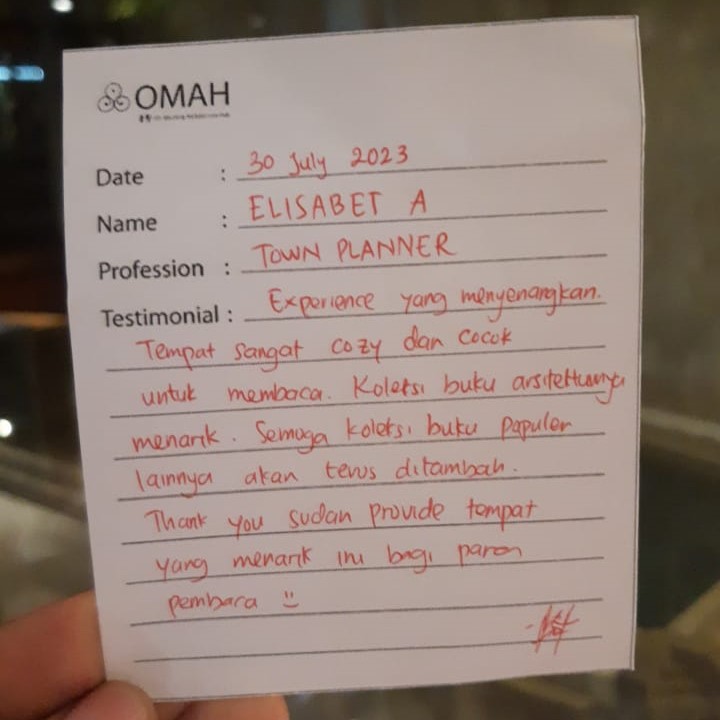 OMAH
Date : 30 July 2023
Name : ELISABET A
Profession : TOWN PLANNER
Testimonial : Experience yang menyenangkan.
Tempat sangat cozy dan cocok
untuk membaca. Koleksi buku arsitekturnya
menarik. Semoga koleksi buku populer
lainnya akan terus ditambah.
Thank you sudah provide tempat
yang menarik ini bagi para
pembaca :)